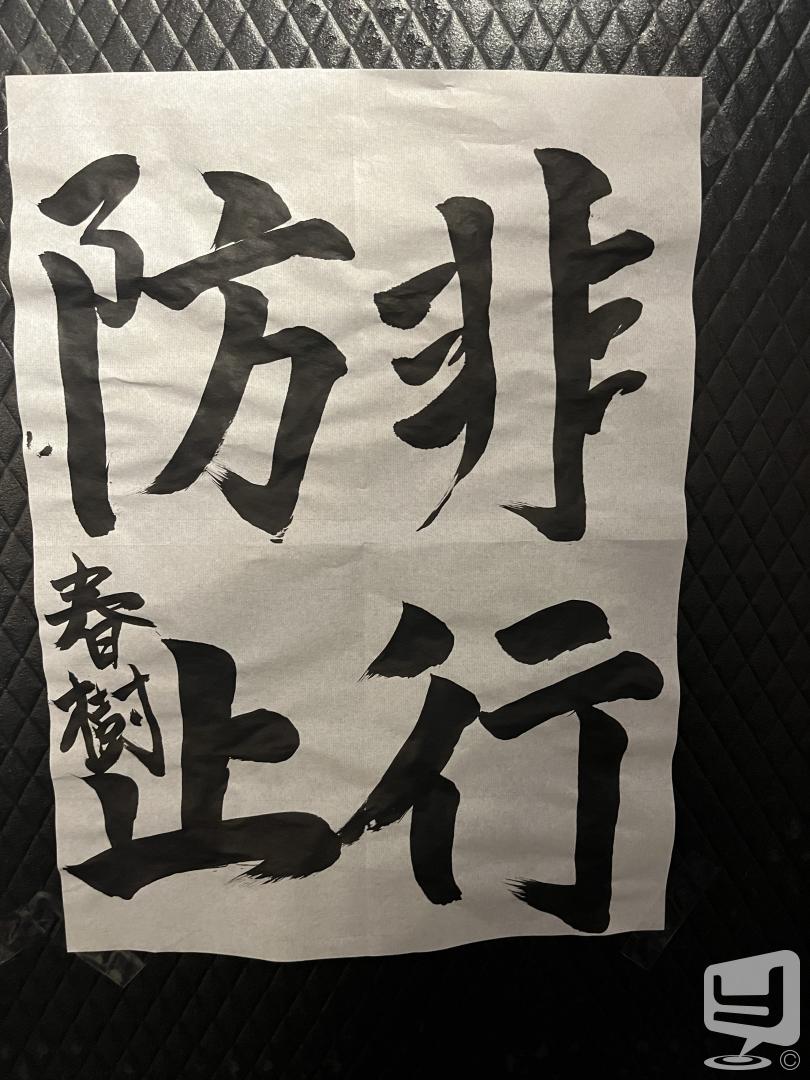 非行
防止
春樹